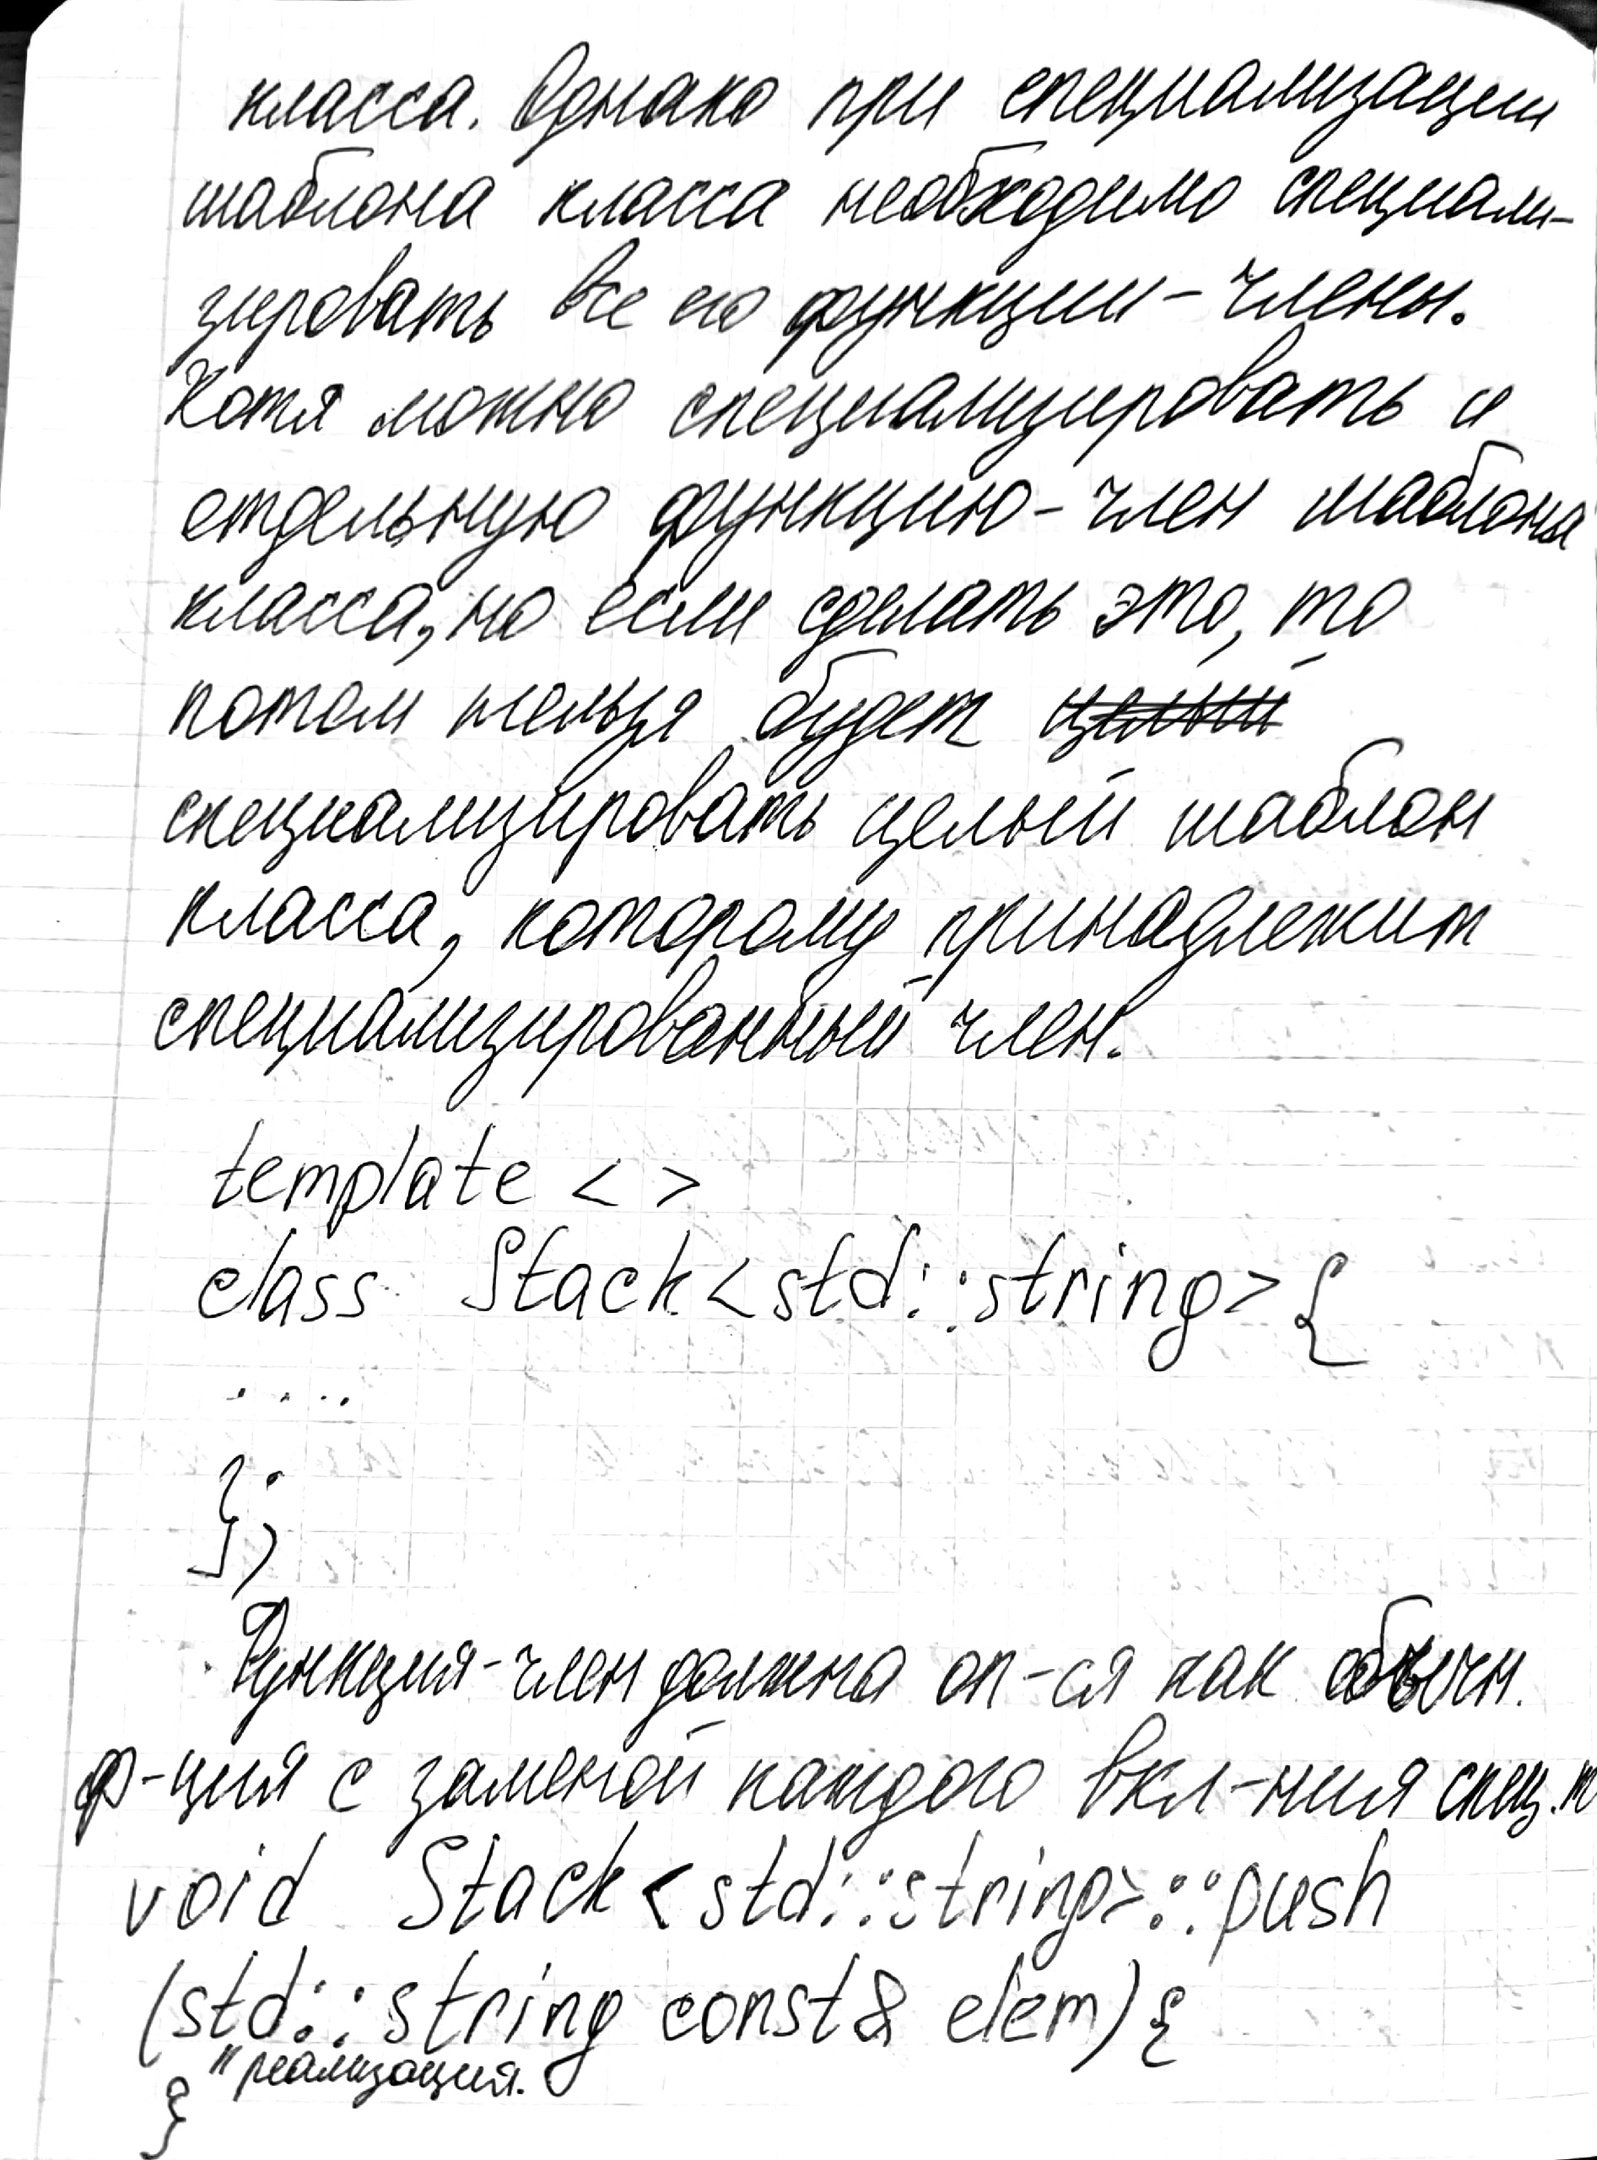 класса. Однако при специализации
шаблона класса необходимо специали-
зировать все его функции-члены.
Хотя можно специализировать и
отдельную функцию-член шаблона
класса, но если сделать это, то
потом нельзя будет целый
специализировать целый шаблон
класса, которому принадлежит
специализированный член.
template < >
class Stack<std::string> {
....
};
Функция-член должна оп-ся как обычн.
ф-ция с заменой каждого вкл-ния спец. т
void Stack<std::string>::push
(std::string const& elem) {
// реализация.
}